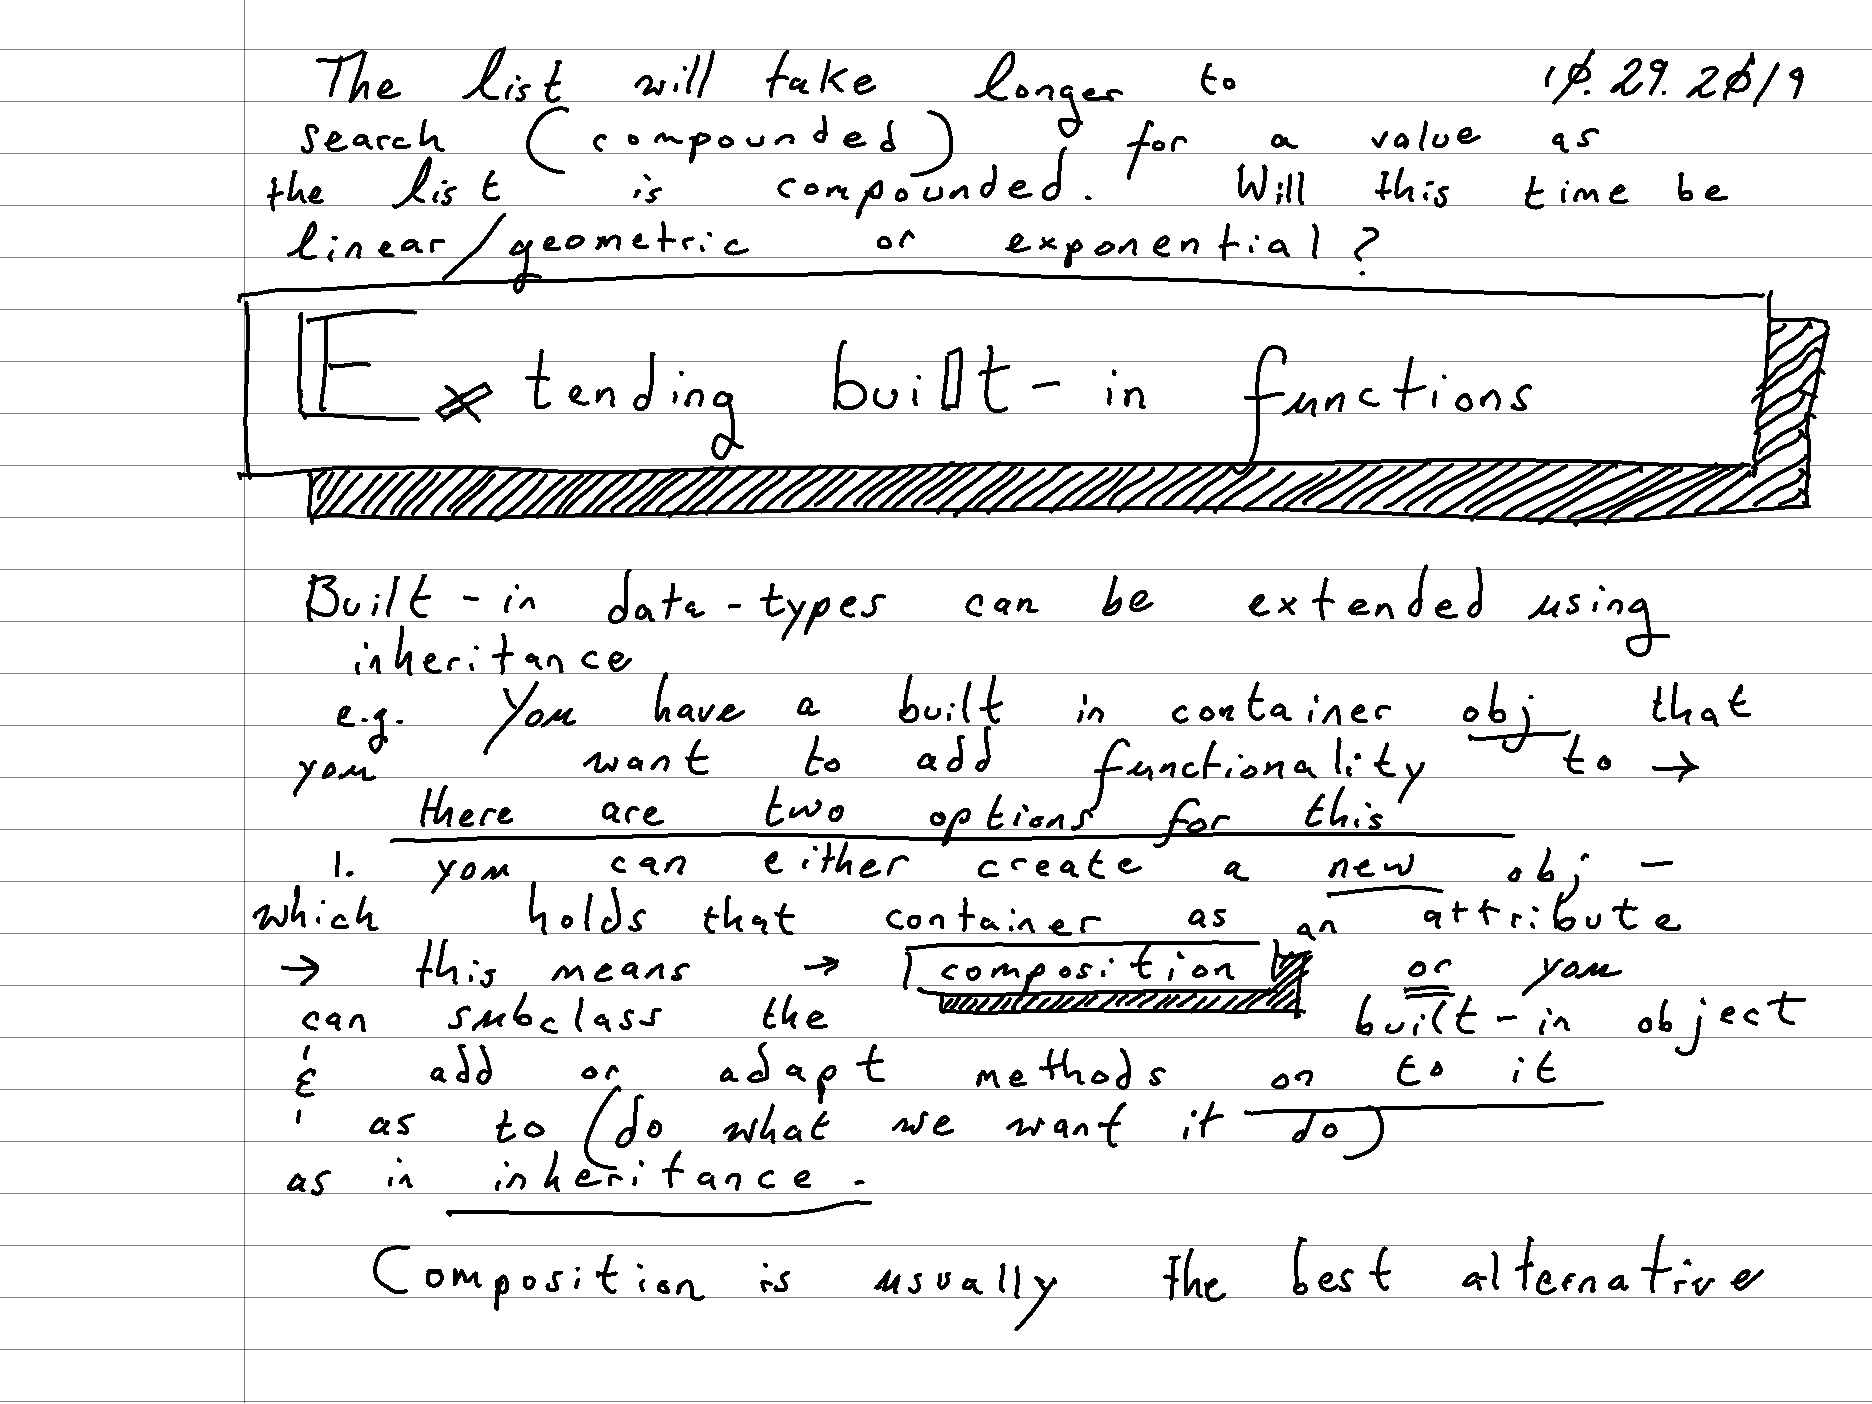 The list will take longer to 10.29.2019
search (compounded) for a value as
the list is compounded. Will this time be
linear/geometric or exponential?
Extending built-in functions
Built-in data-types can be extended using
inheritance
e.g. You have a built in container obj that
you want to add functionality to →
there are two options for this
1. you can either create a new obj -
which holds that container as an attribute
→ this means → composition or you
can subclass the built-in object
& add or adapt methods on to it
as to (do what we want it do)
as in inheritance.
Composition is usually the best alternative